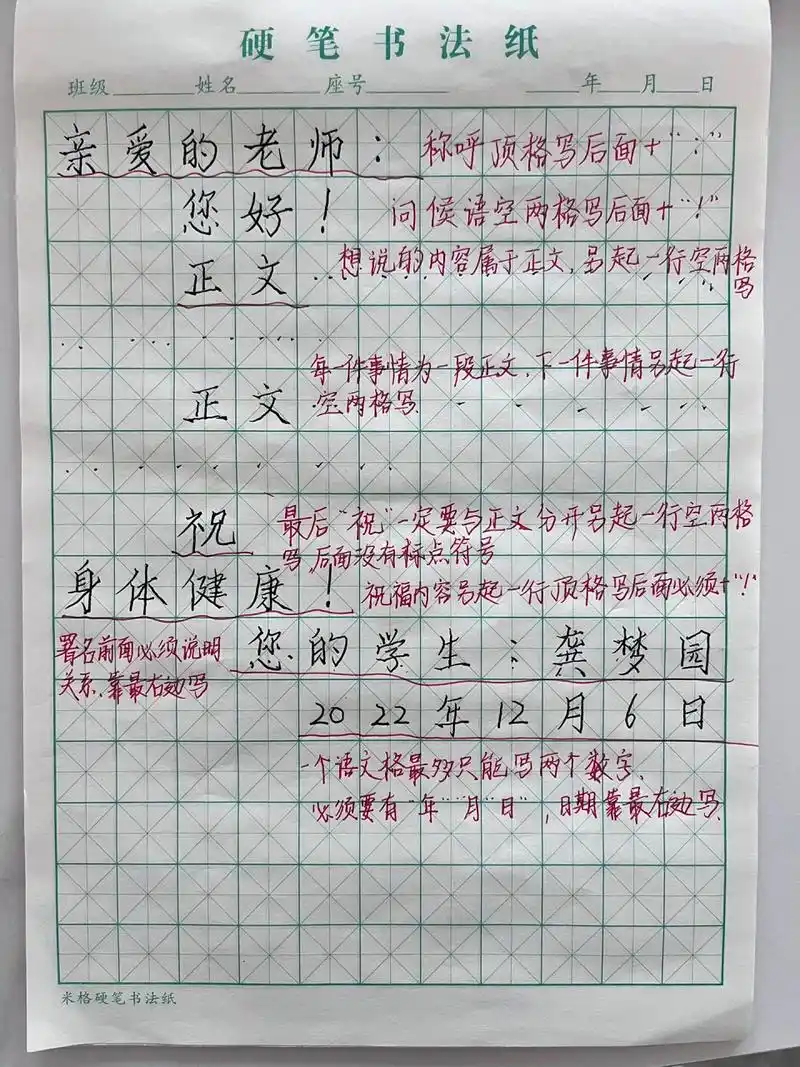 硬笔书法纸
班级 姓名 座号 年 月 日
亲爱的老师：
称呼顶格写后面+“：”
您好！
问候语空两格写后面+“！”
正文……
想说的内容属于正文，另起一行空两格
写
每一件事情为一段正文，下一件事情另起一行
正文
空两格写
祝
最后“祝”一定要与正文分开另起一行空两格
写，后面没有标点符号
身体健康！
祝福内容另起一行顶格写后面必须+“！”
署名前面必须说明
关系，靠最右边写
您的学生：龚梦园
2022年12月6日
一个语文格最多只能写两个数字，
必须要有“年”“月”“日”，日期靠最右边写
米格硬笔书法纸